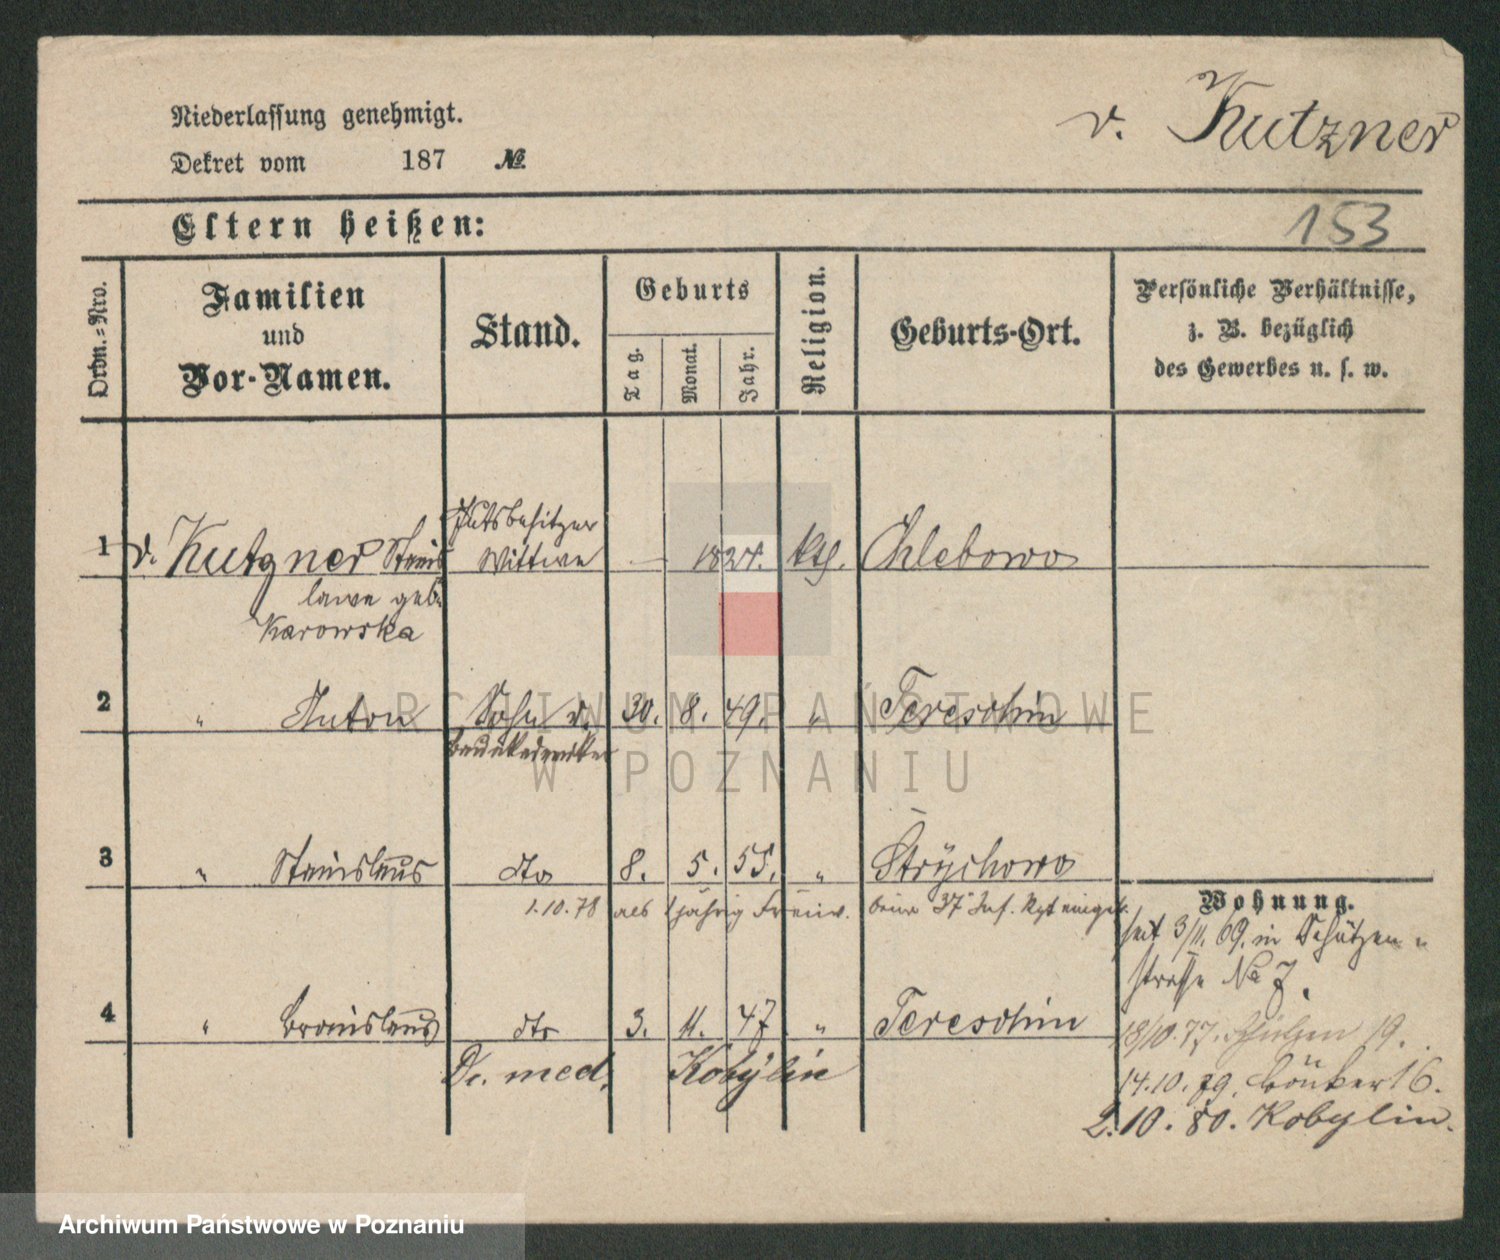 Niederlassung genehmigt.
Dekret vom 187 №
v. Kutzner
Eltern heißen:
153
Ordn.-Nro.
Familien und Vor-Namen.
Stand.
Geburts
Tag.
Monat.
Jahr.
Religion.
Geburts-Ort.
Persönliche Verhältnisse,
z. B. bezüglich
des Gewerbes u. s. w.
Gutsbesitzer
1 v. Kutzner Stanis Wittwe — 1824. kth. Chlebowo
lawa geb.
Karowska
2 " Anton Sohn v. 30. 8. 49. " Tereschin
3 " Stanislaus dto 8. 5. 55. " Strychowo
1.10.78 als 1jährig Freiw. beim 37 Inf. Rgt einget.
Wohnung.
seit 3/11. 69. in Schützen-
strasse No 7.
4 " Bronislaus dto 3. 11. 47 " Tereschin
18/10. 77. Schützen 19.
Dr. med. Kobylin
14.10.79. 16.
2.10.80. Kobylin.
ARCHIWUM PAŃSTWOWE
W POZNANIU
Archiwum Państwowe w Poznaniu